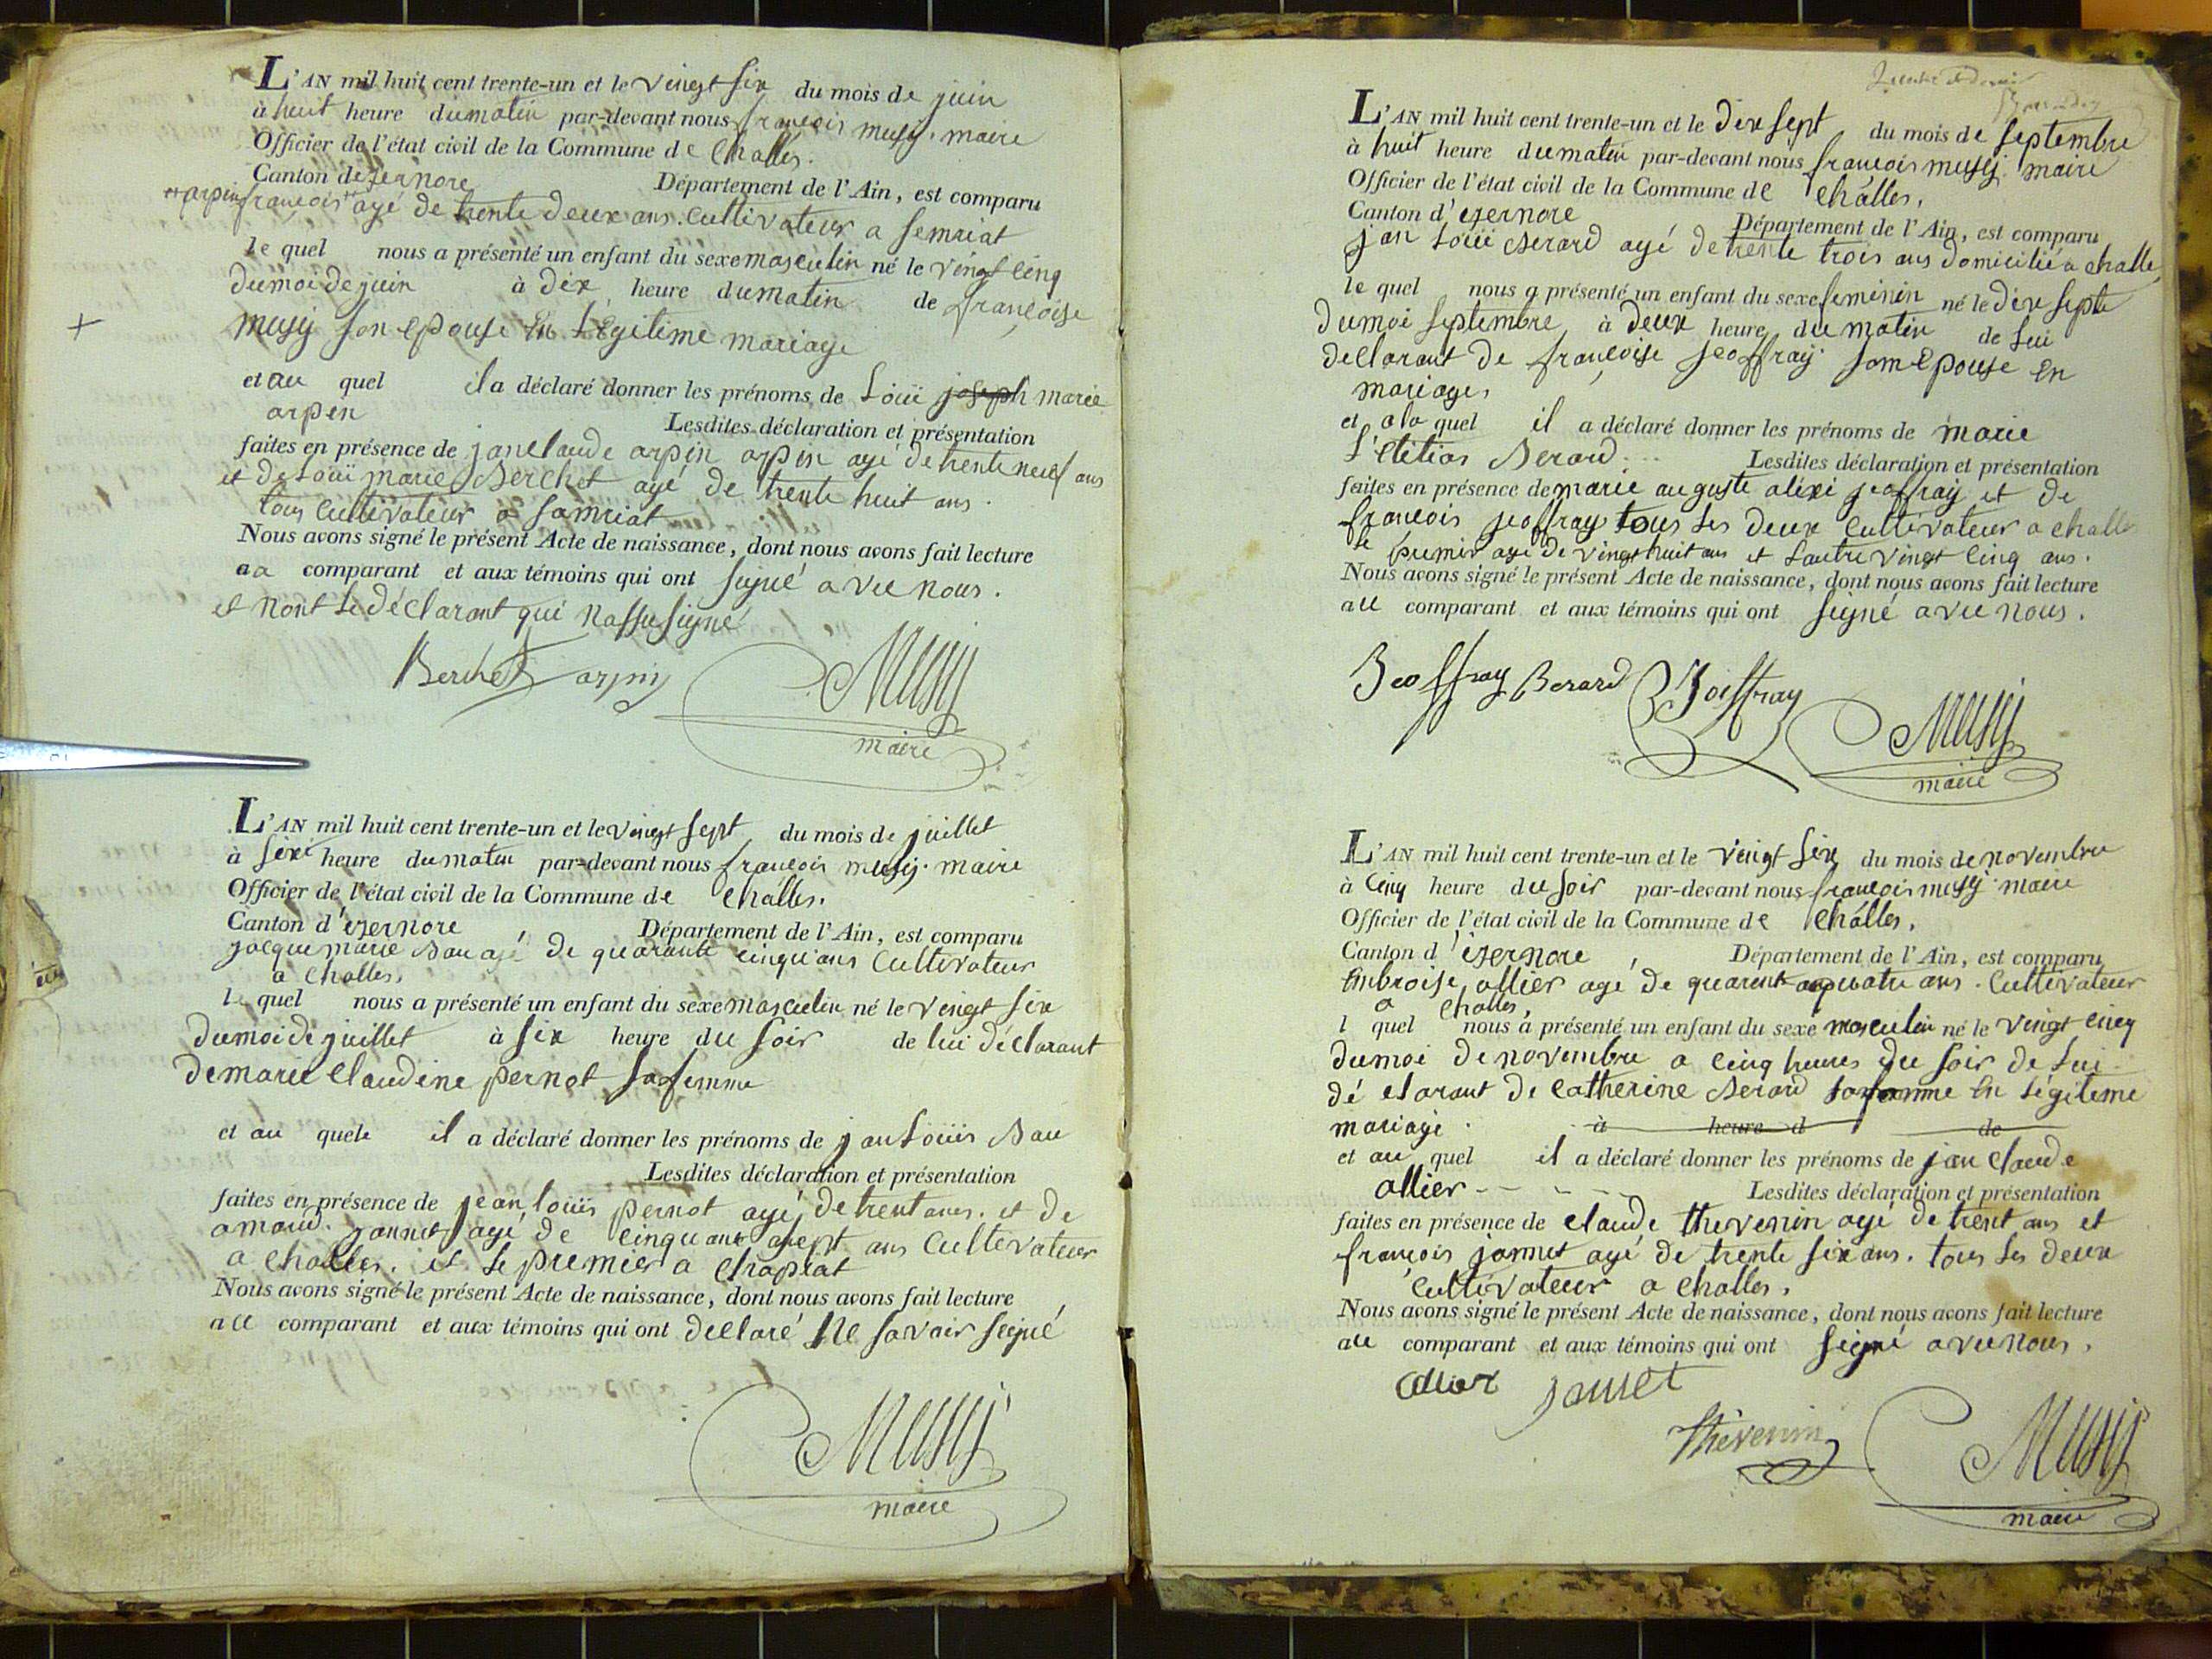 L'AN mil huit cent trente-un et le vingt six du mois de juin
à huit heure dumatin par-devant nous françois musy. maire
Officier de l'état civil de la Commune de Challes.
Canton dezernore Département de l'Ain, est comparu
++arpin françois ++ agé de trente deux ans. Cultivateur a Semriat
le quel nous a présenté un enfant du sexe masculin né le vingt cinq
dumoi de juin à dix heure dumatin de françoise
musy son epouse En Légitime mariage
et au quel il a déclaré donner les prénoms de Loüi joseph marie
arpen
Lesdites déclaration et présentation
faites en présence de janclaude arpin arpin agé de trente neuf ans
et de Loüi marie Berchet agé de trente huit ans.
tous Cultivateur a Samriat
Nous avons signé le présent Acte de naissance, dont nous avons fait lecture
aa comparant et aux témoins qui ont signé avec nous.
et nont le déclarant qui nassu signé
Berchet arpin Musy
maire
L'AN mil huit cent trente-un et le vingt sept du mois de juillet
à sixe heure dumatin par-devant nous françois musy. maire
Officier de l'état civil de la Commune de Challes.
Canton d'izernore Département de l'Ain, est comparu
jacque marie Bau agé de quarante cinqu'ans Cultivateur
a Challes.
le quel nous a présenté un enfant du sexe masculin né le vingt six
dumoi de juillet à six heure du soir de lui déclarant
de marie Claudine pernot sa femme
et au quele il a déclaré donner les prénoms de jan Loüis Bau
Lesdites déclaration et présentation
faites en présence de jean loüis pernot agé de trent ans. et de
amand. jannet agé de cinquant asept ans Cultevateur
a Challes. et le premier a Chapiat
Nous avons signé le présent Acte de naissance, dont nous avons fait lecture
au comparant et aux témoins qui ont declaré Ne savoir signé
Musy
maire
L'AN mil huit cent trente-un et le dix sept du mois de septembre
à huit heure dumatin par-devant nous françois musy. maire
Officier de l'état civil de la Commune de Challes.
Canton d'izernore Département de l'Ain, est comparu
jan Loüi Berard agé de trente trois ans domicilié a challe
le quel nous a présenté un enfant du sexe feminin né le dix septe
dumoi septembre à deux heure du matin de Lui
declarant de françoise jeoffray. som epouse En
mariage.
et a la quel il a déclaré donner les prénoms de marie
L'etitias Berard
Lesdites déclaration et présentation
faites en présence de marie auguste alixi jeoffray et de
françois jeoffray tous les deux Cultivateur a chall
le premir agé de vingt huit ans et Lautre vingt Cinq ans.
Nous avons signé le présent Acte de naissance, dont nous avons fait lecture
au comparant et aux témoins qui ont signé avec nous.
Geoffray Berard Joeffray Musy
maire
L'AN mil huit cent trente-un et le vingt six du mois de novembre
à Cinq heure du soir par-devant nous françois musy. maire
Officier de l'état civil de la Commune de Challes.
Canton d'izernore Département de l'Ain, est comparu
Embroise allier agé de quarent aquatre ans. Cultivateur
a Challes,
l quel nous a présenté un enfant du sexe masculin né le vingt cinq
dumoi de novembre a cinq heures du soir de Lui
dé clarant de Catherine Berard sa femme En Légiteme
mariage. à heure d de
et au quel il a déclaré donner les prénoms de jan Claude
allier
Lesdites déclaration et présentation
faites en présence de Claude thevenin agé de trent ans et
françois jannet agé de trente six ans. tous Les deux
Cultivateur a Challes.
Nous avons signé le présent Acte de naissance, dont nous avons fait lecture
au comparant et aux témoins qui ont signé avec nous.
allier jannet
Thevenin Musy
maire